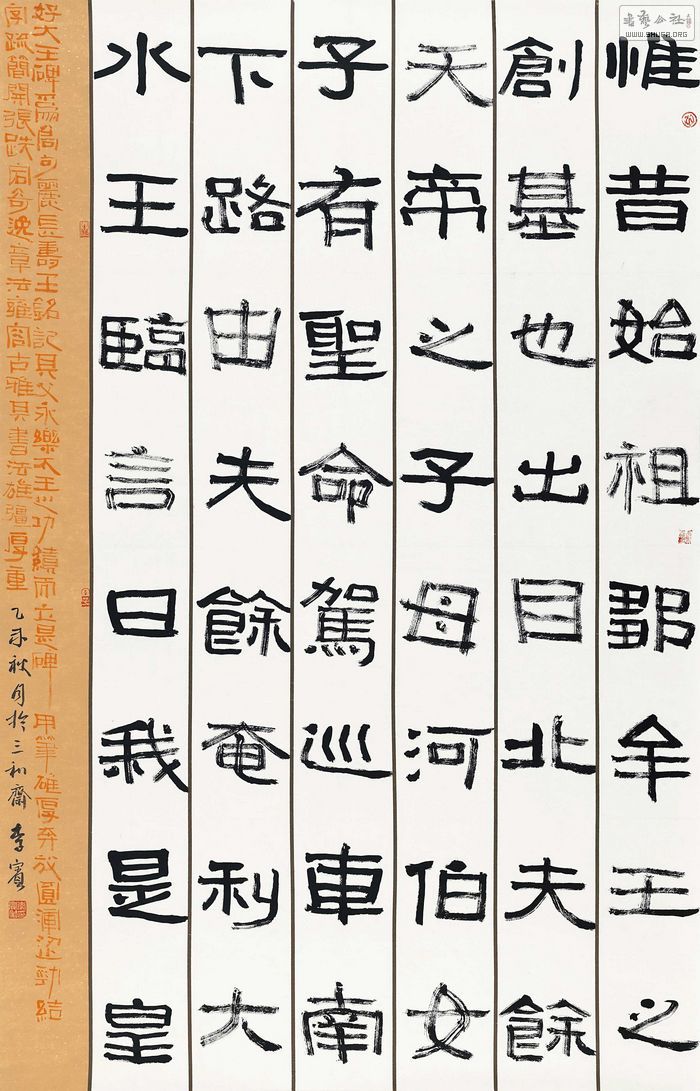 惟昔始祖鄒牟王之
創基也出自北夫餘
天帝之子母河伯女
子有聖命駕巡車南
下路由夫餘奄利大
水王臨言曰我是皇
好大王碑為高句麗長壽王銘記其父永樂太王之功績而立是碑用筆雄厚奔放圓渾遒勁結
字疏簡開張跌宕奇逸章法雍容古雅其書法雄疆厚重 乙未秋月於三和齋 李賓
書藝公社
WWW.SHUGA.ORG